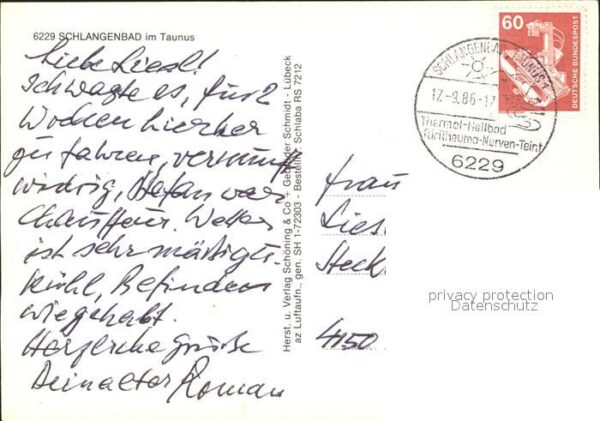 6229 SCHLANGENBAD im Taunus
Liebe Liesl!
Ich wagte es, für 2
Wochen hierher
zu fahren, vernunft
widrig, Stefan war
Chauffeur. Wetter
ist sehr mäßig u.
kühl, Befinden
wie gehabt.
Herzliche Grüße
Dein alter Roman
Herst. u. Verlag Schöning & Co + Gebrüder Schmidt - Lübeck
az Luftaufn., gen. SH 1-72303 - Bestellnr. Schlaba RS 7212
60
DEUTSCHE BUNDESPOST
SCHLANGENBAD
17.-9.86-17
Thermal-Heilbad
für Rheuma-Nerven-Teint
6229
Frau
Lies
Heck
4150
privacy protection
Datenschutz